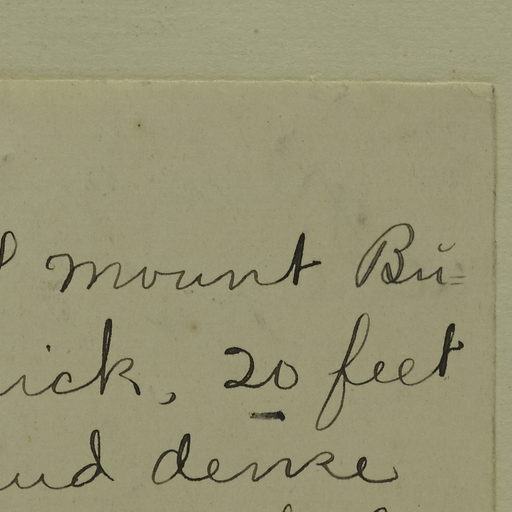 mount Bu=
ick, 20 feet
dense